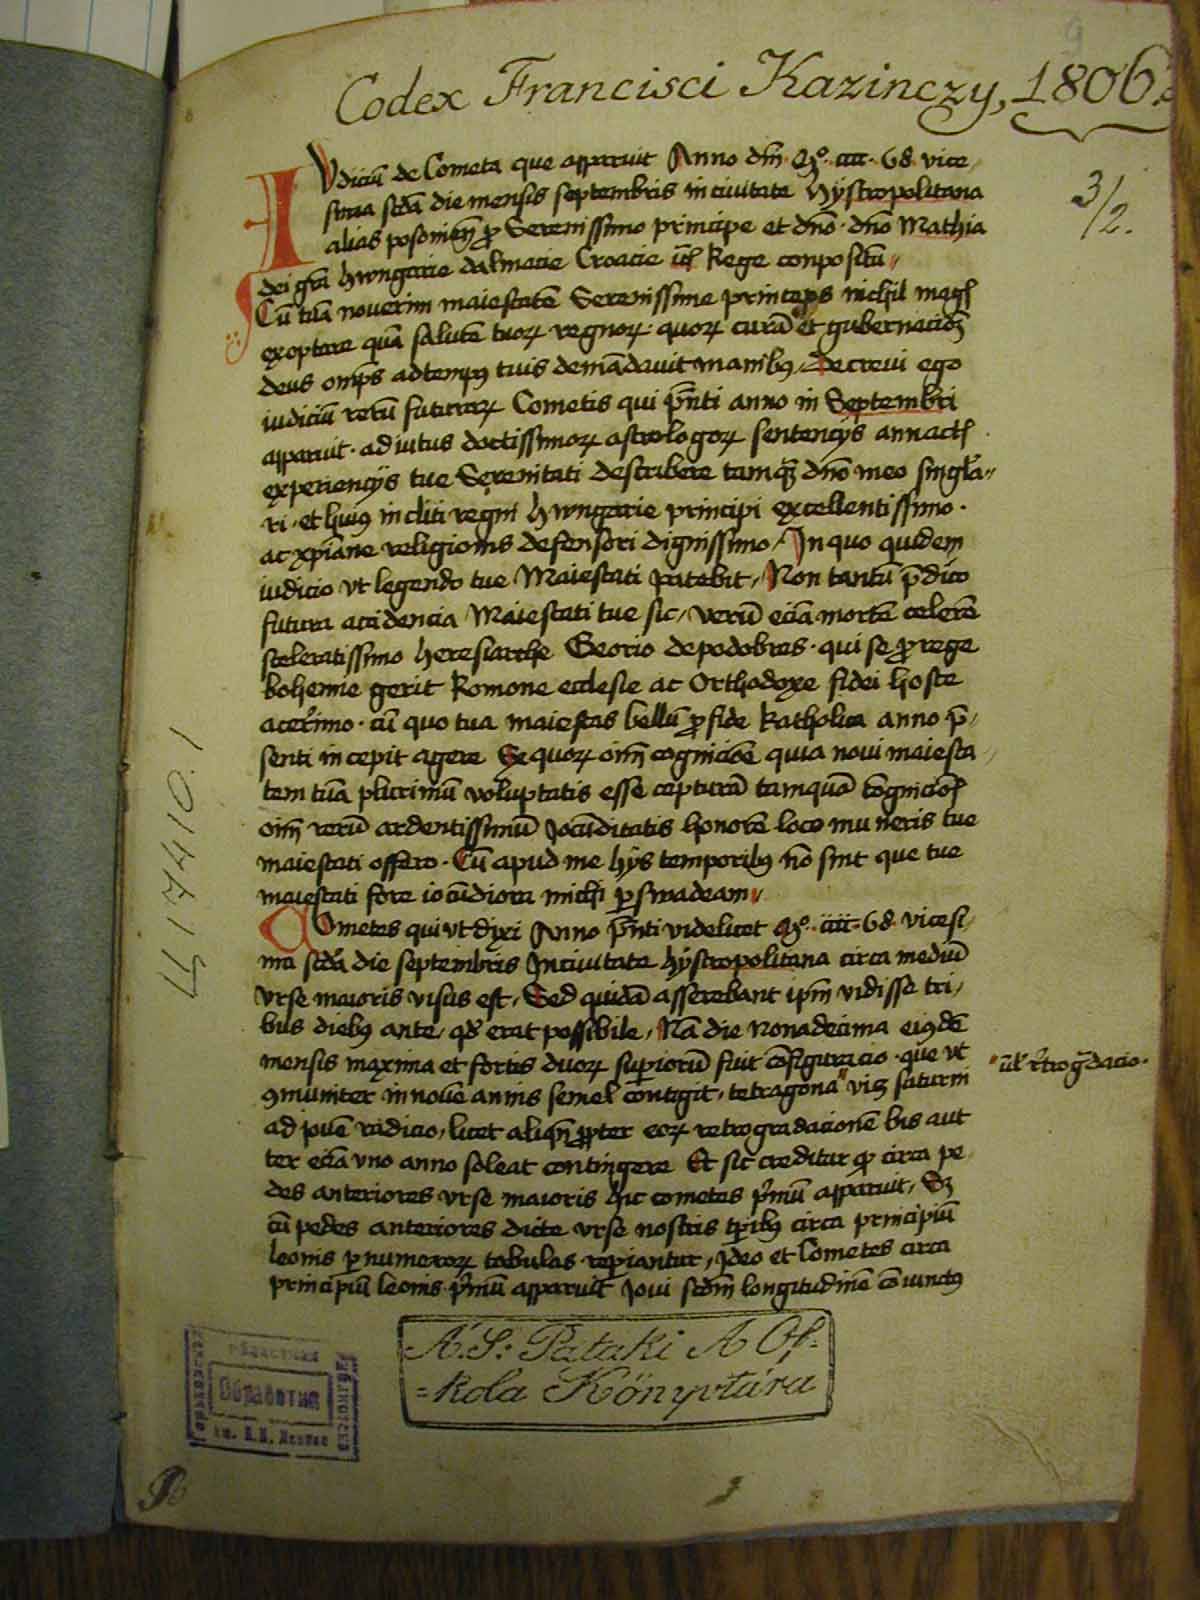 Codex Francisci Kazinczy, 1806.
3/2.
IVdiciū de Cometa que apparuit Anno dm̄ Mº. cccc. 68. vice,
sima scda die mensis septembris in ciuitate hystropolitana
alias posoniēn ꝓ Serenissimo principe et dn̄o. dn̄o Mathia
dei gr̄a hwngarie dalmacie Croacie Rege conpositū
Cū tuā nouerim maiestatē Serenissime princeps nichil magis
exoptare quā salutē tuoꝝ regnoꝝ. quoꝝ curā et gubernacioē
deus omp̄s ad tempꝰ tuis demādauit manibꝰ, Decreui ego
iudiciū rerū futuraꝝ Cometis qui p̄nti anno in Septembri
apparuit. adiutus doctissimoꝝ astrologoꝝ sentencys
experiencys tue Serenitati describere tamqȝ dn̄o meo singla
ri. et huiꝰ incliti regni hwngarie principi excellentissimo.
ac xp̄iane religionis defensori dignissimo, In quo quidem
iudicio vt legendo tue Maiestati patebit, Non tantū p̄dico
futura accidencia Maiestati tue sic, verū eciā mortē celerē
sceleratissimo heresiarche Georio de podobras. qui se ꝓ rege
bohemie gerit Romone ecclesie ac Orthodoxe fidei hoste
acerimo. cū quo tua maiestas bellū ꝓ fide katholica anno p̄,
senti incepit agere Se quoꝝ oīm cognicioē quia noui maiesta,
tem tuā plurimū voluptatis esse capturā tamquā cognicioēs
oīm rerū ardentissimū Jocūditatis honorē loco muneris tue
maiestati offero. Cū apud me hys temporibꝰ nō sint que tue
maiestati fore iocūdiora michi ꝑswadeam
Cometes qui vt dixi Anno p̄nti videlicet Mº. cccc. 68. vicesi,
ma scda die septembris In ciuitate hystropolitana circa mediū
vrse maioris visus est, Sed quidā asserebant ip̄m vidisse tri,
bus diebꝰ ante, qd̄ erat possibile, Nā die Nonadecima eiꝰdē
mensis maxima et fortis duoꝝ superiorū fuit cōfiguracio. que vt
ꝯmuniter in nouē annis semel contigit, tetragona viȝ saturni
rtrogdacio.
ad jouē radicio, licet aliqn̄ ꝓpter eoꝝ retrogradacionē bis aut
ter eciā vno anno soleat contingere Et sic creditur qꝫ circa pe
des anteriores vrse maioris hic cometes p̄mū apparuit, Sȝ
cū pedes anteriores dicte vrse nostris tp̄ibꝰ circa principiū
leonis ꝑ numeroꝝ tabulas repiantur, Jdeo et Cometes circa
principiū leonis p̄mū apparuit Joui scdm̄ longitudinē cōiunctꝰ
A' S: Pataki A Os=
=kola Könyvtára
Обработка
174101